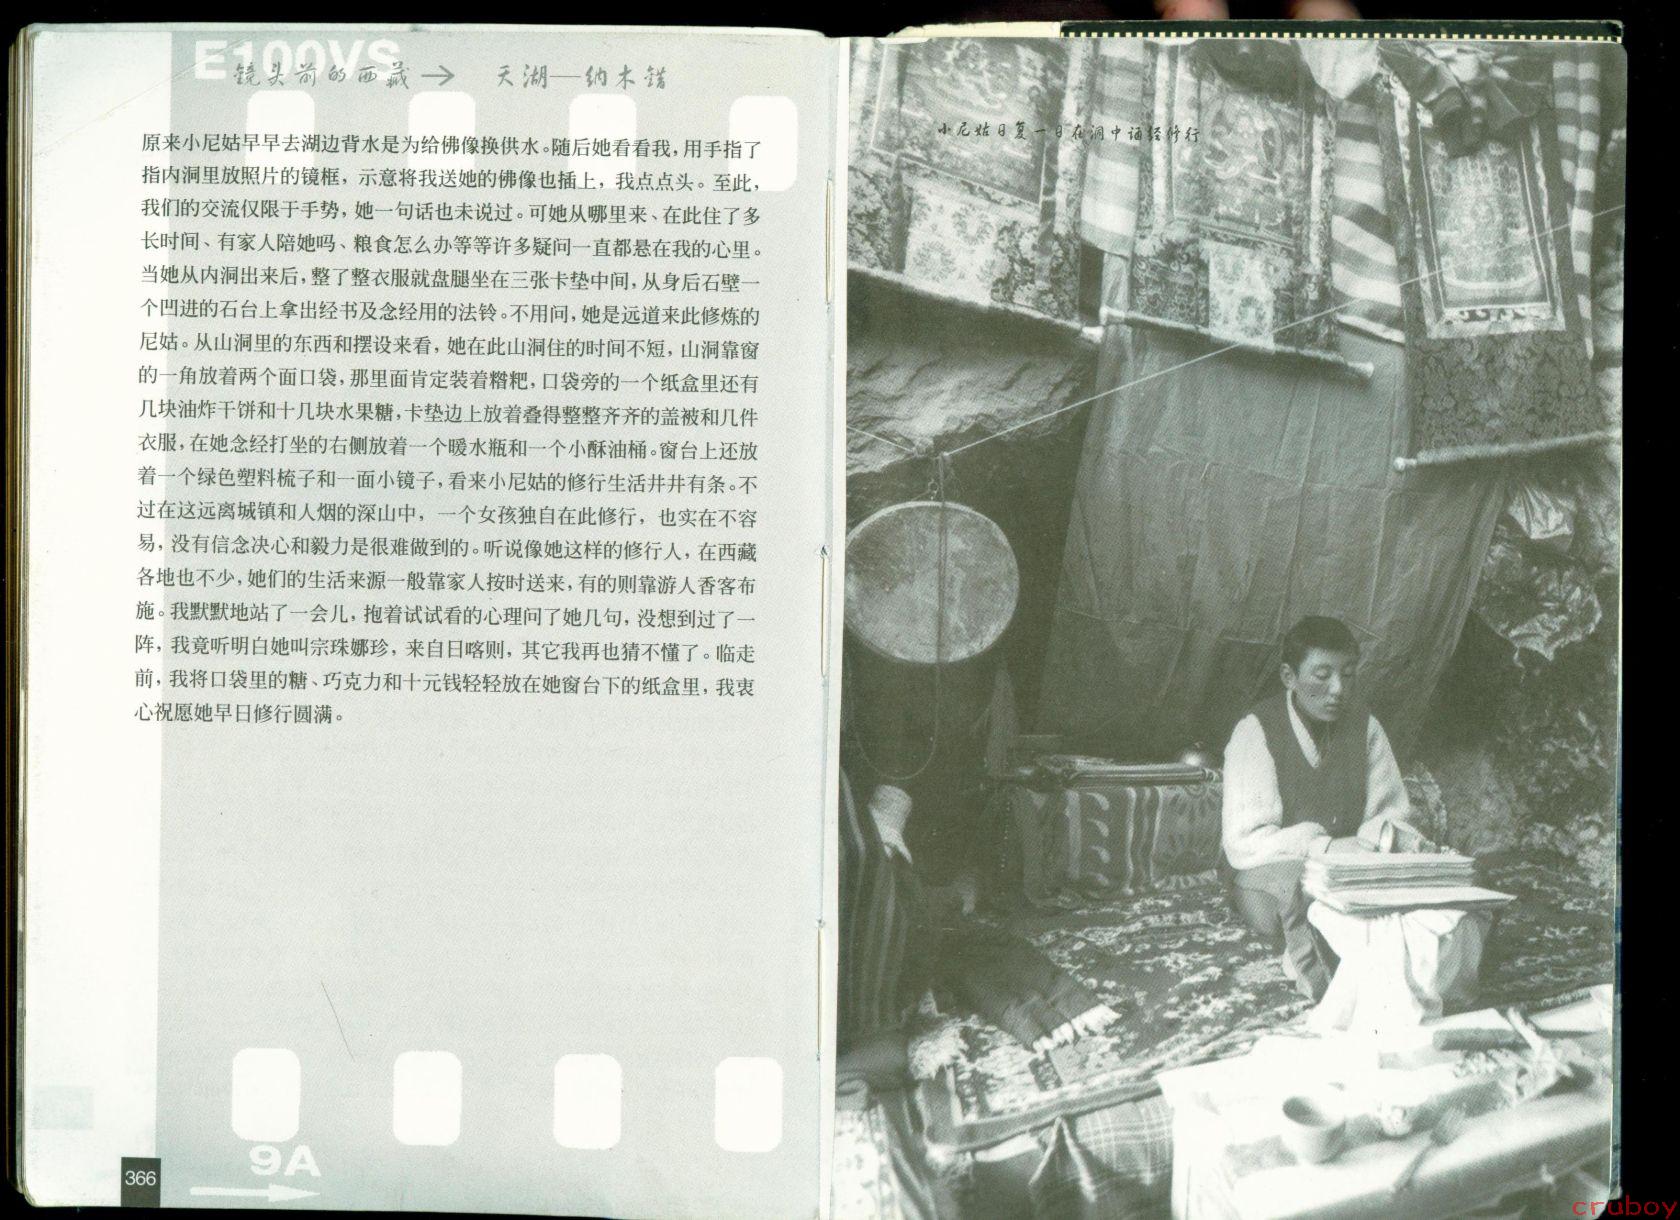 E100VS
镜头前的西藏→ 天湖—纳木错
原来小尼姑早早去湖边背水是为给佛像换供水。随后她看看我，用手指了
指内洞里放照片的镜框，示意将我送她的佛像也插上，我点点头。至此，
我们的交流仅限于手势，她一句话也未说过。可她从哪里来、在此住了多
长时间、有家人陪她吗、粮食怎么办等等许多疑问一直都悬在我的心里。
当她从内洞出来后，整了整衣服就盘腿坐在三张卡垫中间，从身后石壁一
个凹进的石台上拿出经书及念经用的法铃。不用问，她是远道来此修炼的
尼姑。从山洞里的东西和摆设来看，她在此山洞住的时间不短，山洞靠窗
的一角放着两个面口袋，那里面肯定装着糌粑，口袋旁的一个纸盒里还有
几块油炸干饼和十几块水果糖，卡垫边上放着叠得整整齐齐的盖被和几件
衣服，在她念经打坐的右侧放着一个暖水瓶和一个小酥油桶。窗台上还放
着一个绿色塑料梳子和一面小镜子，看来小尼姑的修行生活井井有条。不
过在这远离城镇和人烟的深山中，一个女孩独自在此修行，也实在不容
易，没有信念决心和毅力是很难做到的。听说像她这样的修行人，在西藏
各地也不少，她们的生活来源一般靠家人按时送来，有的则靠游人香客布
施。我默默地站了一会儿，抱着试试看的心理问了她几句，没想到过了一
阵，我竟听明白她叫宗珠娜珍，来自日喀则，其它我再也猜不懂了。临走
前，我将口袋里的糖、巧克力和十元钱轻轻放在她窗台下的纸盒里，我衷
心祝愿她早日修行圆满。
9A
366
小尼姑日复一日在洞中诵经修行
cruboy